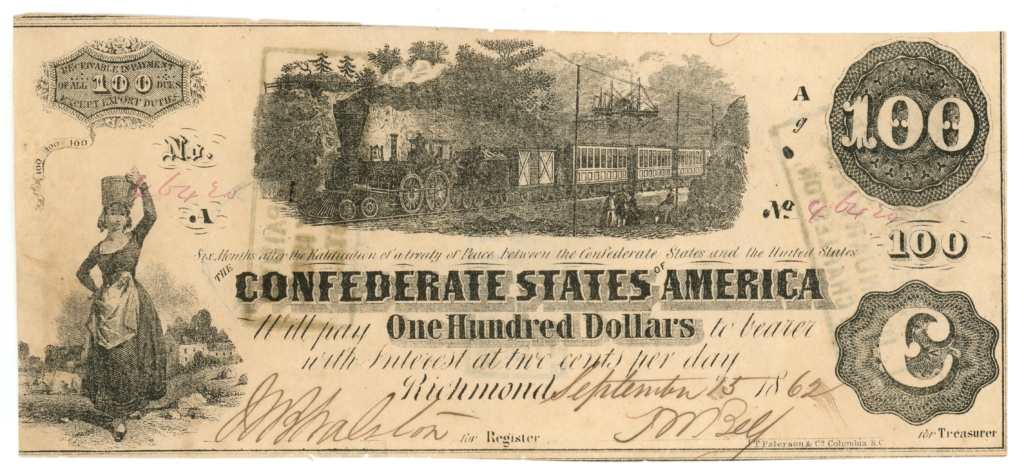 RECEIVABLE IN PAYMENT
OF ALL 100 DUES
EXCEPT EXPORT DUTIES
100 100 100
No.
A
A
9
100
No
100
Six Months after the Ratification of a treaty of Peace between the Confederate States and the United States
THE CONFEDERATE STATES OF AMERICA
Will pay One Hundred Dollars to bearer
with Interest at two cents per day
Richmond September 15 1862
C
for Register
for Treasurer
J.T. Paterson & Co. Columbia S.C.